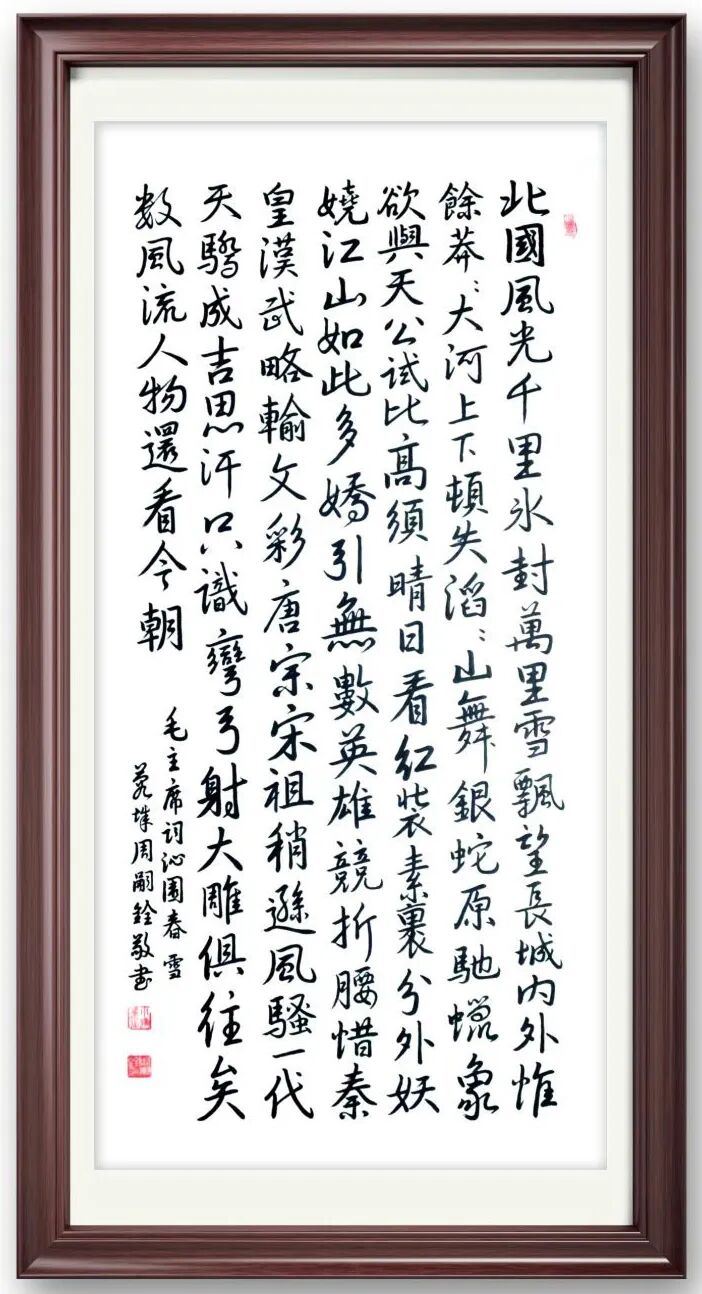 北國風光千里冰封萬里雪飄望長城內外惟
餘莽〻大河上下頓失滔〻山舞銀蛇原馳蠟象
欲與天公試比高須晴日看紅裝素裹分外妖
嬈江山如此多嬌引無數英雄競折腰惜秦
皇漢武略輸文彩唐宗宋祖稍遜風騷一代
天驕成吉思汗只識彎弓射大雕俱往矣
数風流人物還看今朝
毛主席詞沁園春雪
周嗣銓敬书